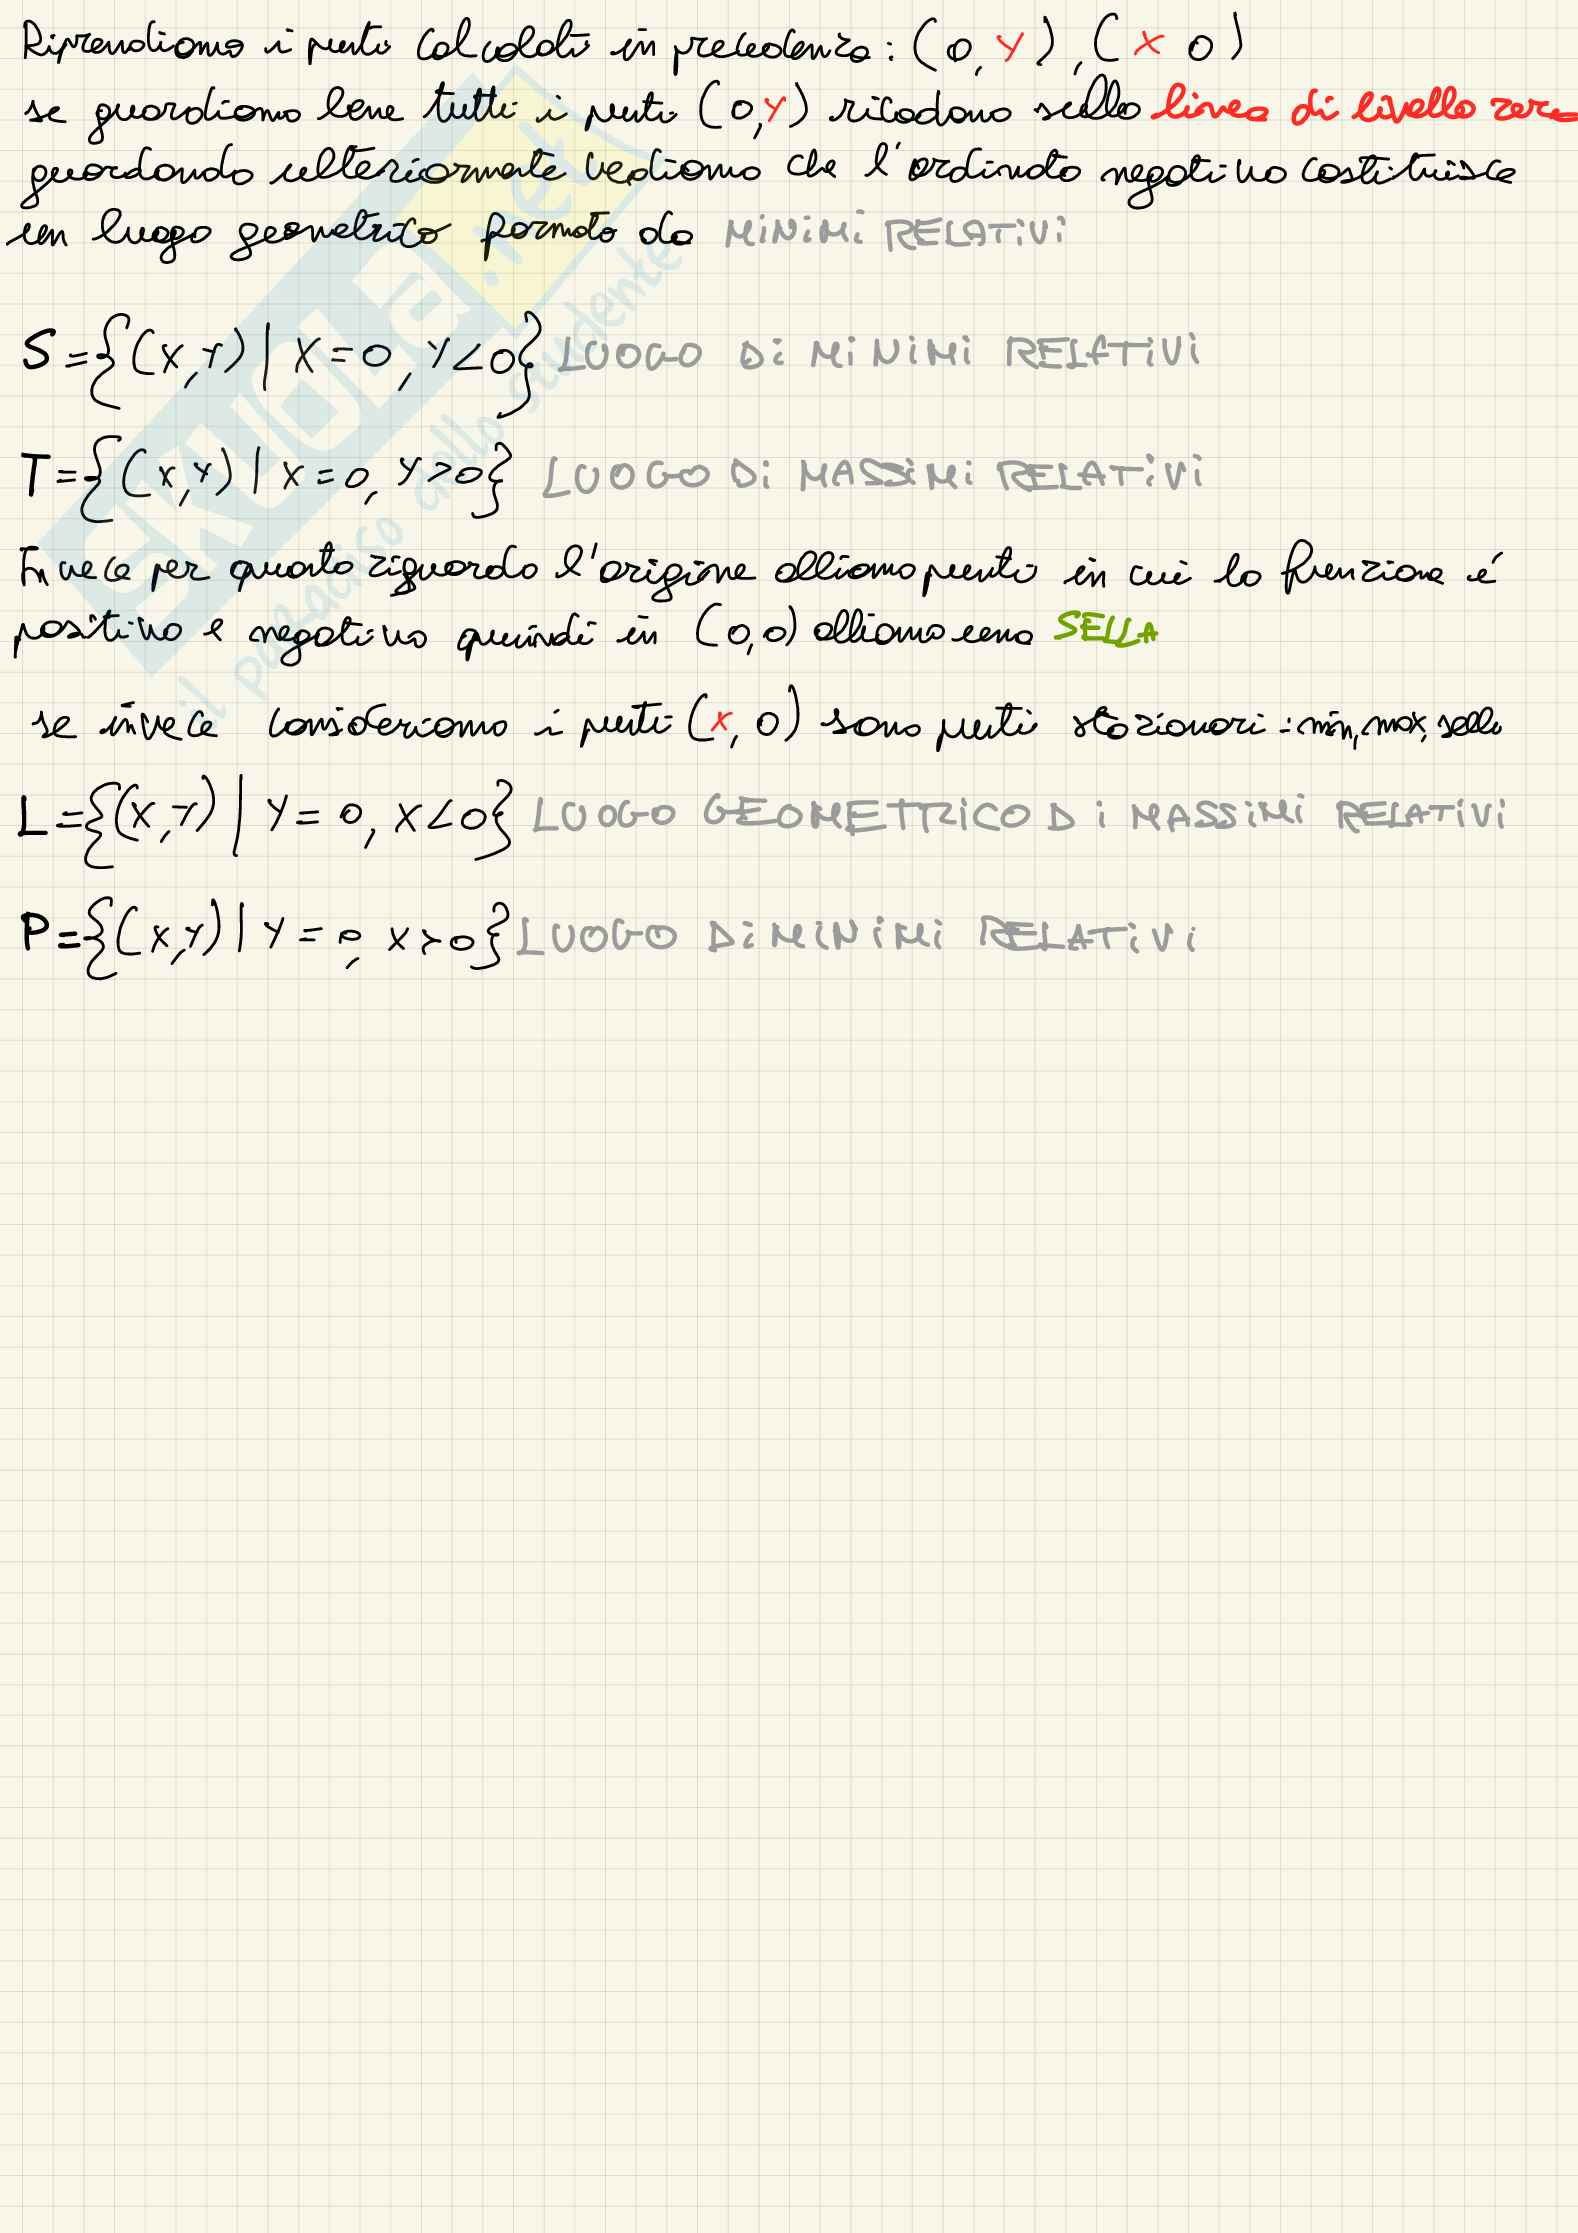 Riprendiamo i punti calcolati in precedenza: (0, Y), (X 0)
se guardiamo bene tutti i punti (0,Y) ricadono sulla linea di livello zero
guardando ulteriormente vediamo che l'ordinata negativa costituisce
un luogo geometrico formato da MINIMI RELATIVI
S={(X,Y) | X=0, Y<0} LUOGO DI MINIMI RELATIVI
T={(X,Y) | X=0, Y>0} LUOGO DI MASSIMI RELATIVI
Invece per quanto riguarda l'origine abbiamo punti in cui la funzione é
positiva e negativa quindi in (0,0) abbiamo una SELLA
se invece consideriamo i punti (X, 0) sono punti stazionari : min, max, sella
L={(X,Y) | Y=0, X<0} LUOGO GEOMETRICO DI MASSIMI RELATIVI
P={(X,Y) | Y=0, X>0} LUOGO DI MINIMI RELATIVI
SKUOLA.net
il paradiso dello studente